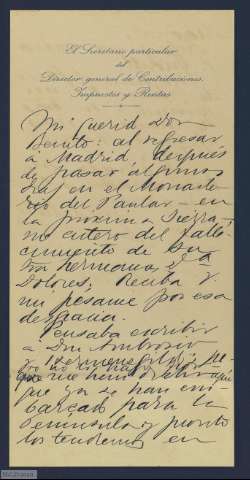 El Secretario particular
del
Director general de Contribuciones,
Impuestos y Rentas
Mi querido Don
Benito: al regresar
a Madrid, después
de pasar algunos
días en el Monaste
rio del Paular – en
la próxima Sierra,–
me entero del falle
cimiento de su
hermana, Dª
Dolores; Reciba V.
mi pésame por esa
desgracia.
Pensaba escribir
a Don Ambrosio
y Hermenegildo;
que ya se han em
barcado para la
Península y pronto
los tendremos en